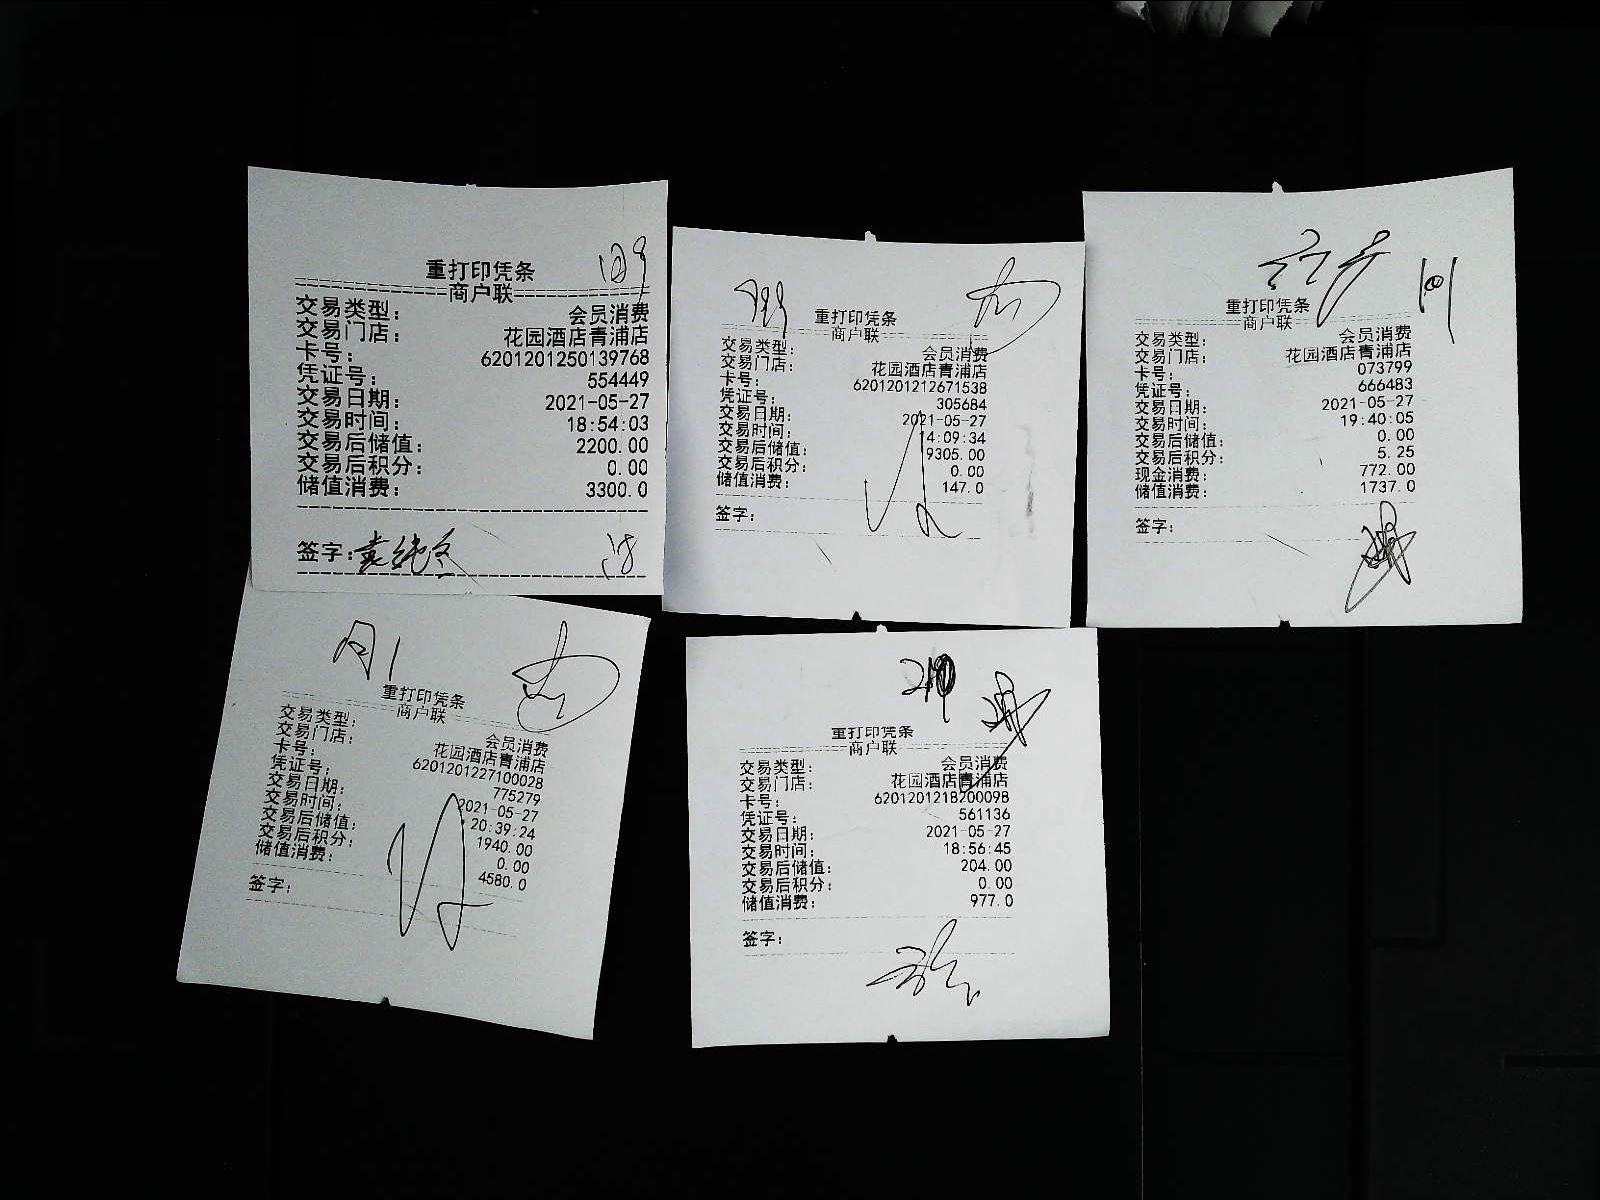 重打印凭条
商户联
交易类型： 会员消费
交易门店： 花园酒店青浦店
卡号： 6201201250139768
凭证号： 554449
交易日期： 2021-05-27
交易时间： 18:54:03
交易后储值： 2200.00
交易后积分： 0.00
储值消费： 3300.0
签字：
重打印凭条
商户联
交易类型： 会员消费
交易门店： 花园酒店青浦店
卡号： 6201201212671538
凭证号： 305684
交易日期： 2021-05-27
交易时间： 14:09:34
交易后储值： 9305.00
交易后积分： 0.00
储值消费： 147.0
签字：
重打印凭条
商户联
交易类型： 会员消费
交易门店： 花园酒店青浦店
卡号： 073799
凭证号： 666483
交易日期： 2021-05-27
交易时间： 19:40:05
交易后储值： 0.00
交易后积分： 5.25
现金消费： 772.00
储值消费： 1737.0
签字：
重打印凭条
商户联
交易类型： 会员消费
交易门店： 花园酒店青浦店
卡号： 6201201227100028
凭证号： 775279
交易日期： 2021-05-27
交易时间： 20:39:24
交易后储值： 1940.00
交易后积分： 0.00
储值消费： 4580.0
签字：
重打印凭条
商户联
交易类型： 会员消费
交易门店： 花园酒店青浦店
卡号： 6201201218200098
凭证号： 561136
交易日期： 2021-05-27
交易时间： 18:56:45
交易后储值： 204.00
交易后积分： 0.00
储值消费： 977.0
签字：